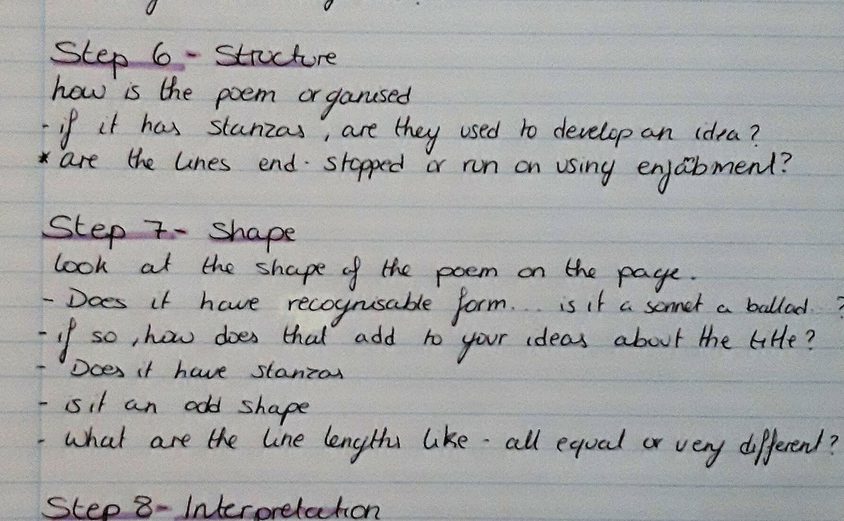 Step 6 - Structure
how is the poem organised
- if it has stanzas, are they used to develop an idea?
* are the lines end-stopped or run on using enjabment?
Step 7 - Shape
look at the shape of the poem on the page.
- Does it have recognisable form... is it a sonnet a ballad. ?
- if so, how does that add to your ideas about the title?
- Does it have stanzas
- is it an odd shape
- what are the line lengths like - all equal or very different?
Step 8 - Interpretation